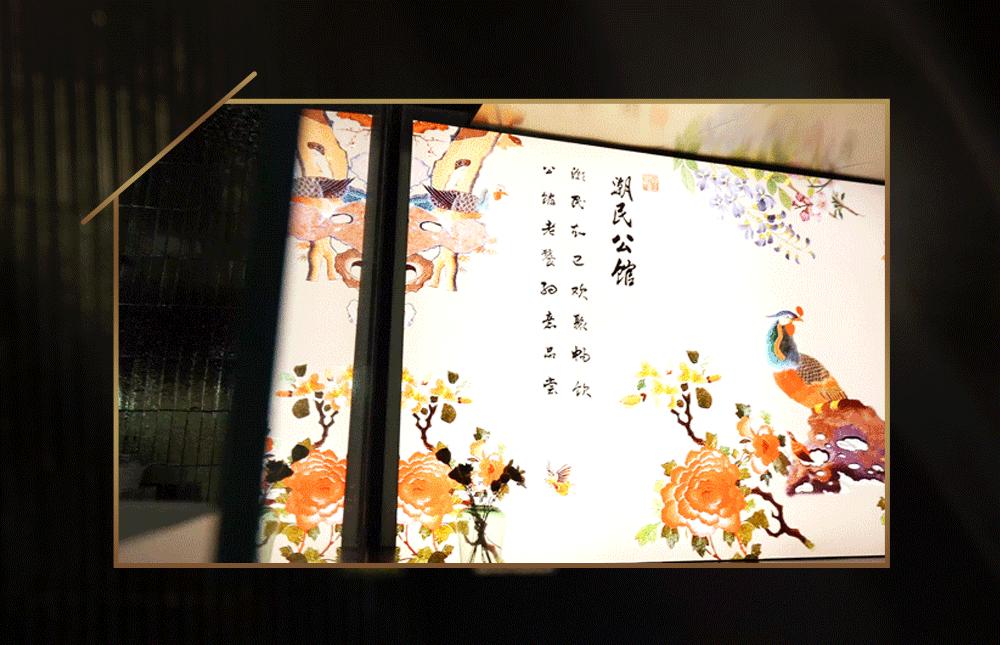 潮民公馆
潮民知己欢聚畅饮
公馆老饕细意品尝